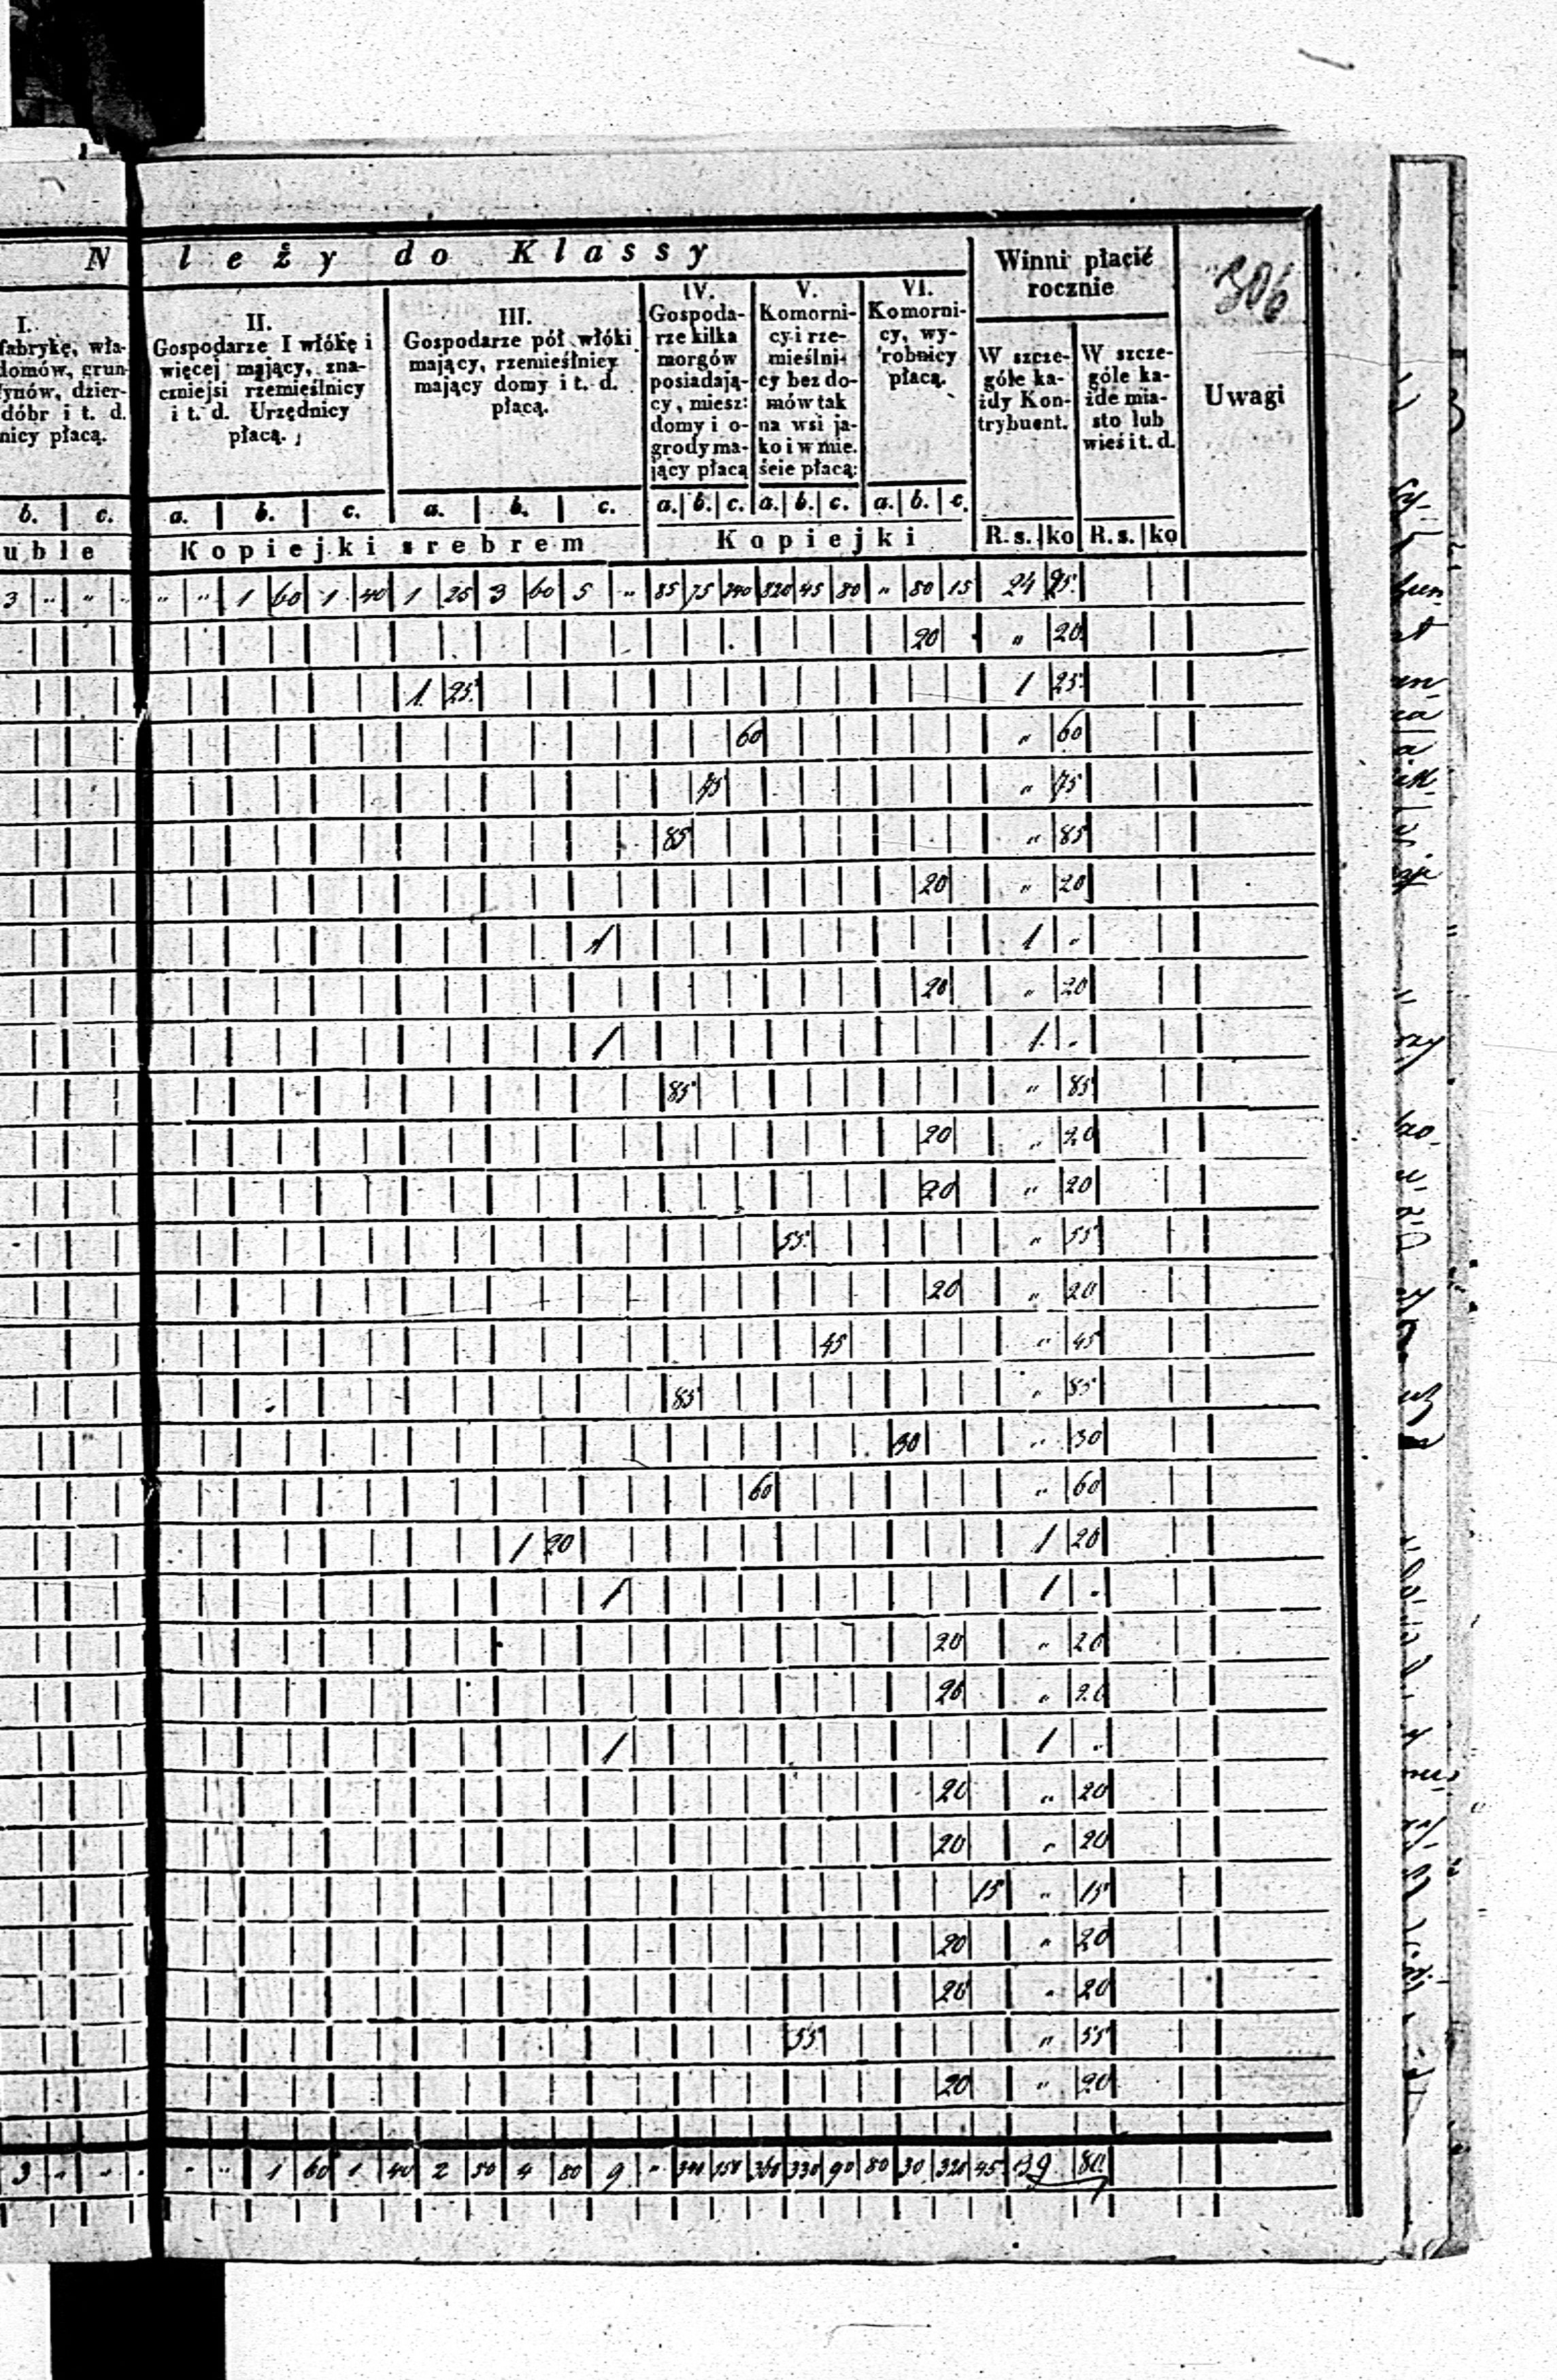 N leży do Klassy
Winni płacić
rocznie
306
I.
fabrykę, wła-
domów, grun-
ynów, dzier-
dóbr i t. d.
nicy płacą.
II.
Gospodarze I włókę i
więcej mający, zna-
czniejsi rzemieślnicy
i t. d. Urzędnicy
płacą.
III.
Gospodarze pół włóki
mający, rzemieślnicy
mający domy i t. d.
płacą.
IV.
Gospoda-
rze kilka
morgów
posiadają-
cy, miesz:
domy i o-
grody ma-
jący płacą
V.
Komorni-
cy i rze-
mieślni-
cy bez do-
mów tak
na wsi ja-
ko i w mie.
ście płacą:
VI.
Komorni-
cy, wy-
robnicy
płacą.
W szcze-
góle ka-
żdy Kon-
trybuent.
W szcze-
góle ka-
żde mia-
sto lub
wieś i t. d.
Uwagi
b. c. a. b. c. a. b. c. a. b. c. a. b. c. a. b. c.
uble Kopiejki srebrem Kopiejki R. s. ko R. s. ko
3 " " " " " 1 60 1 40 1 25 3 60 5 " 85 75 240 220 45 80 " 80 15 24 95
20 " 20
1 25 1 25
60 " 60
75 " 75
85 " 85
20 " 20
1 1 "
20 " 20
1 1 "
85 " 85
20 " 20
20 " 20
55 " 55
20 " 20
45 " 45
85 " 85
30 " 30
60 " 60
1 20 1 20
1 1 "
20 " 20
20 " 20
1 1 "
20 " 20
20 " 20
15 " 15
20 " 20
20 " 20
55 " 55
20 " 20
3 " " " " " 1 60 1 40 2 50 4 80 9 " 340 150 360 330 90 80 30 320 45 39 80